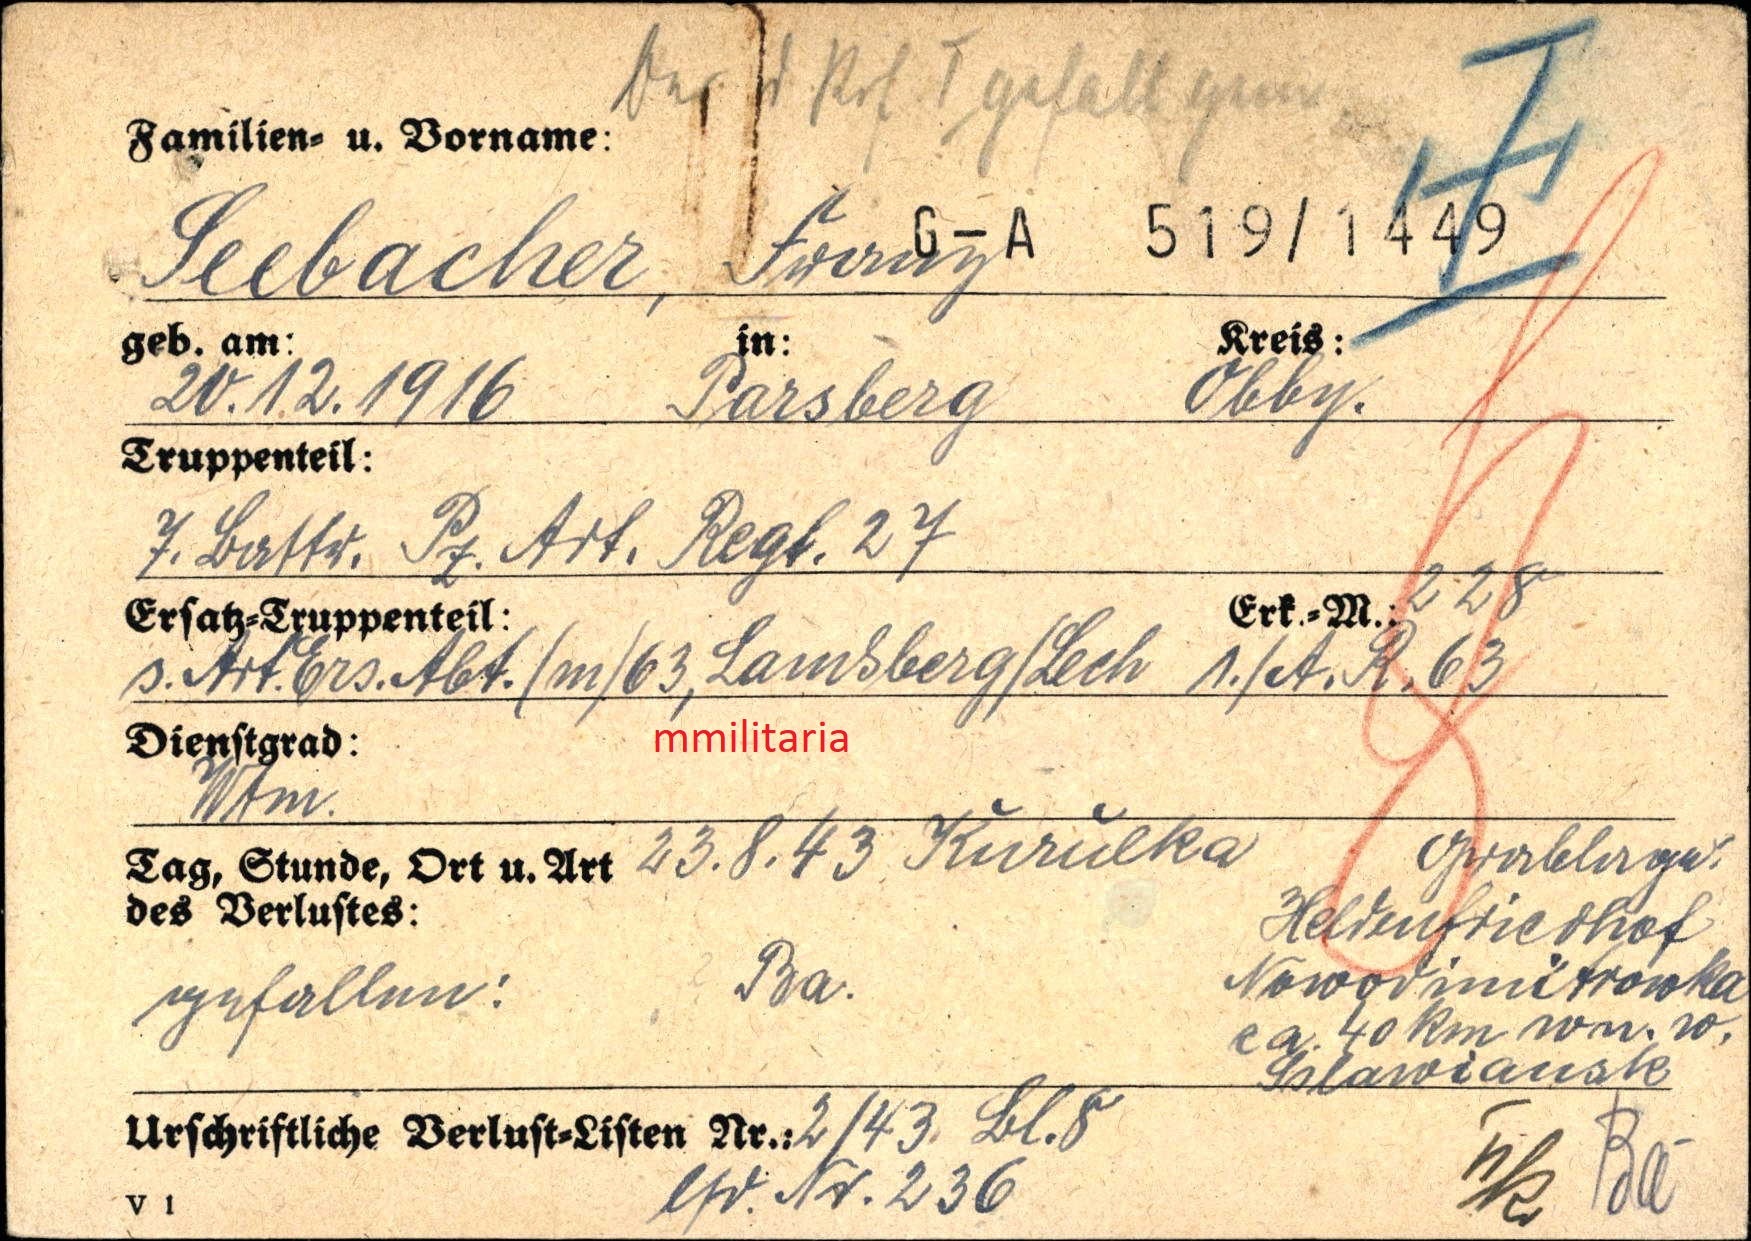 gefall
Familien- u. Vorname:
Seebacher, Franz G-A 519/1449
geb. am: in: Kreis:
20.12.1916 Parsberg Obby.
Truppenteil:
7. Battr. Pz. Art. Regt. 27
Ersatz-Truppenteil: Erk.-M.: 228
s. Art. Ers. Abt. (m) 63, Landsberg/Lech 1./A. R. 63
Dienstgrad:
mmilitaria
Wtm.
Tag, Stunde, Ort u. Art 23.8.43 Kurulka Grablage:
des Verlustes: Heldenfriedhof
gefallen: Ba. Nowodimitrowka
ca. 40 km wn. w.
Sslawiansk
Urschriftliche Verlust-Listen Nr.: 2/43 Bl. 8
lfd. Nr. 236
V 1